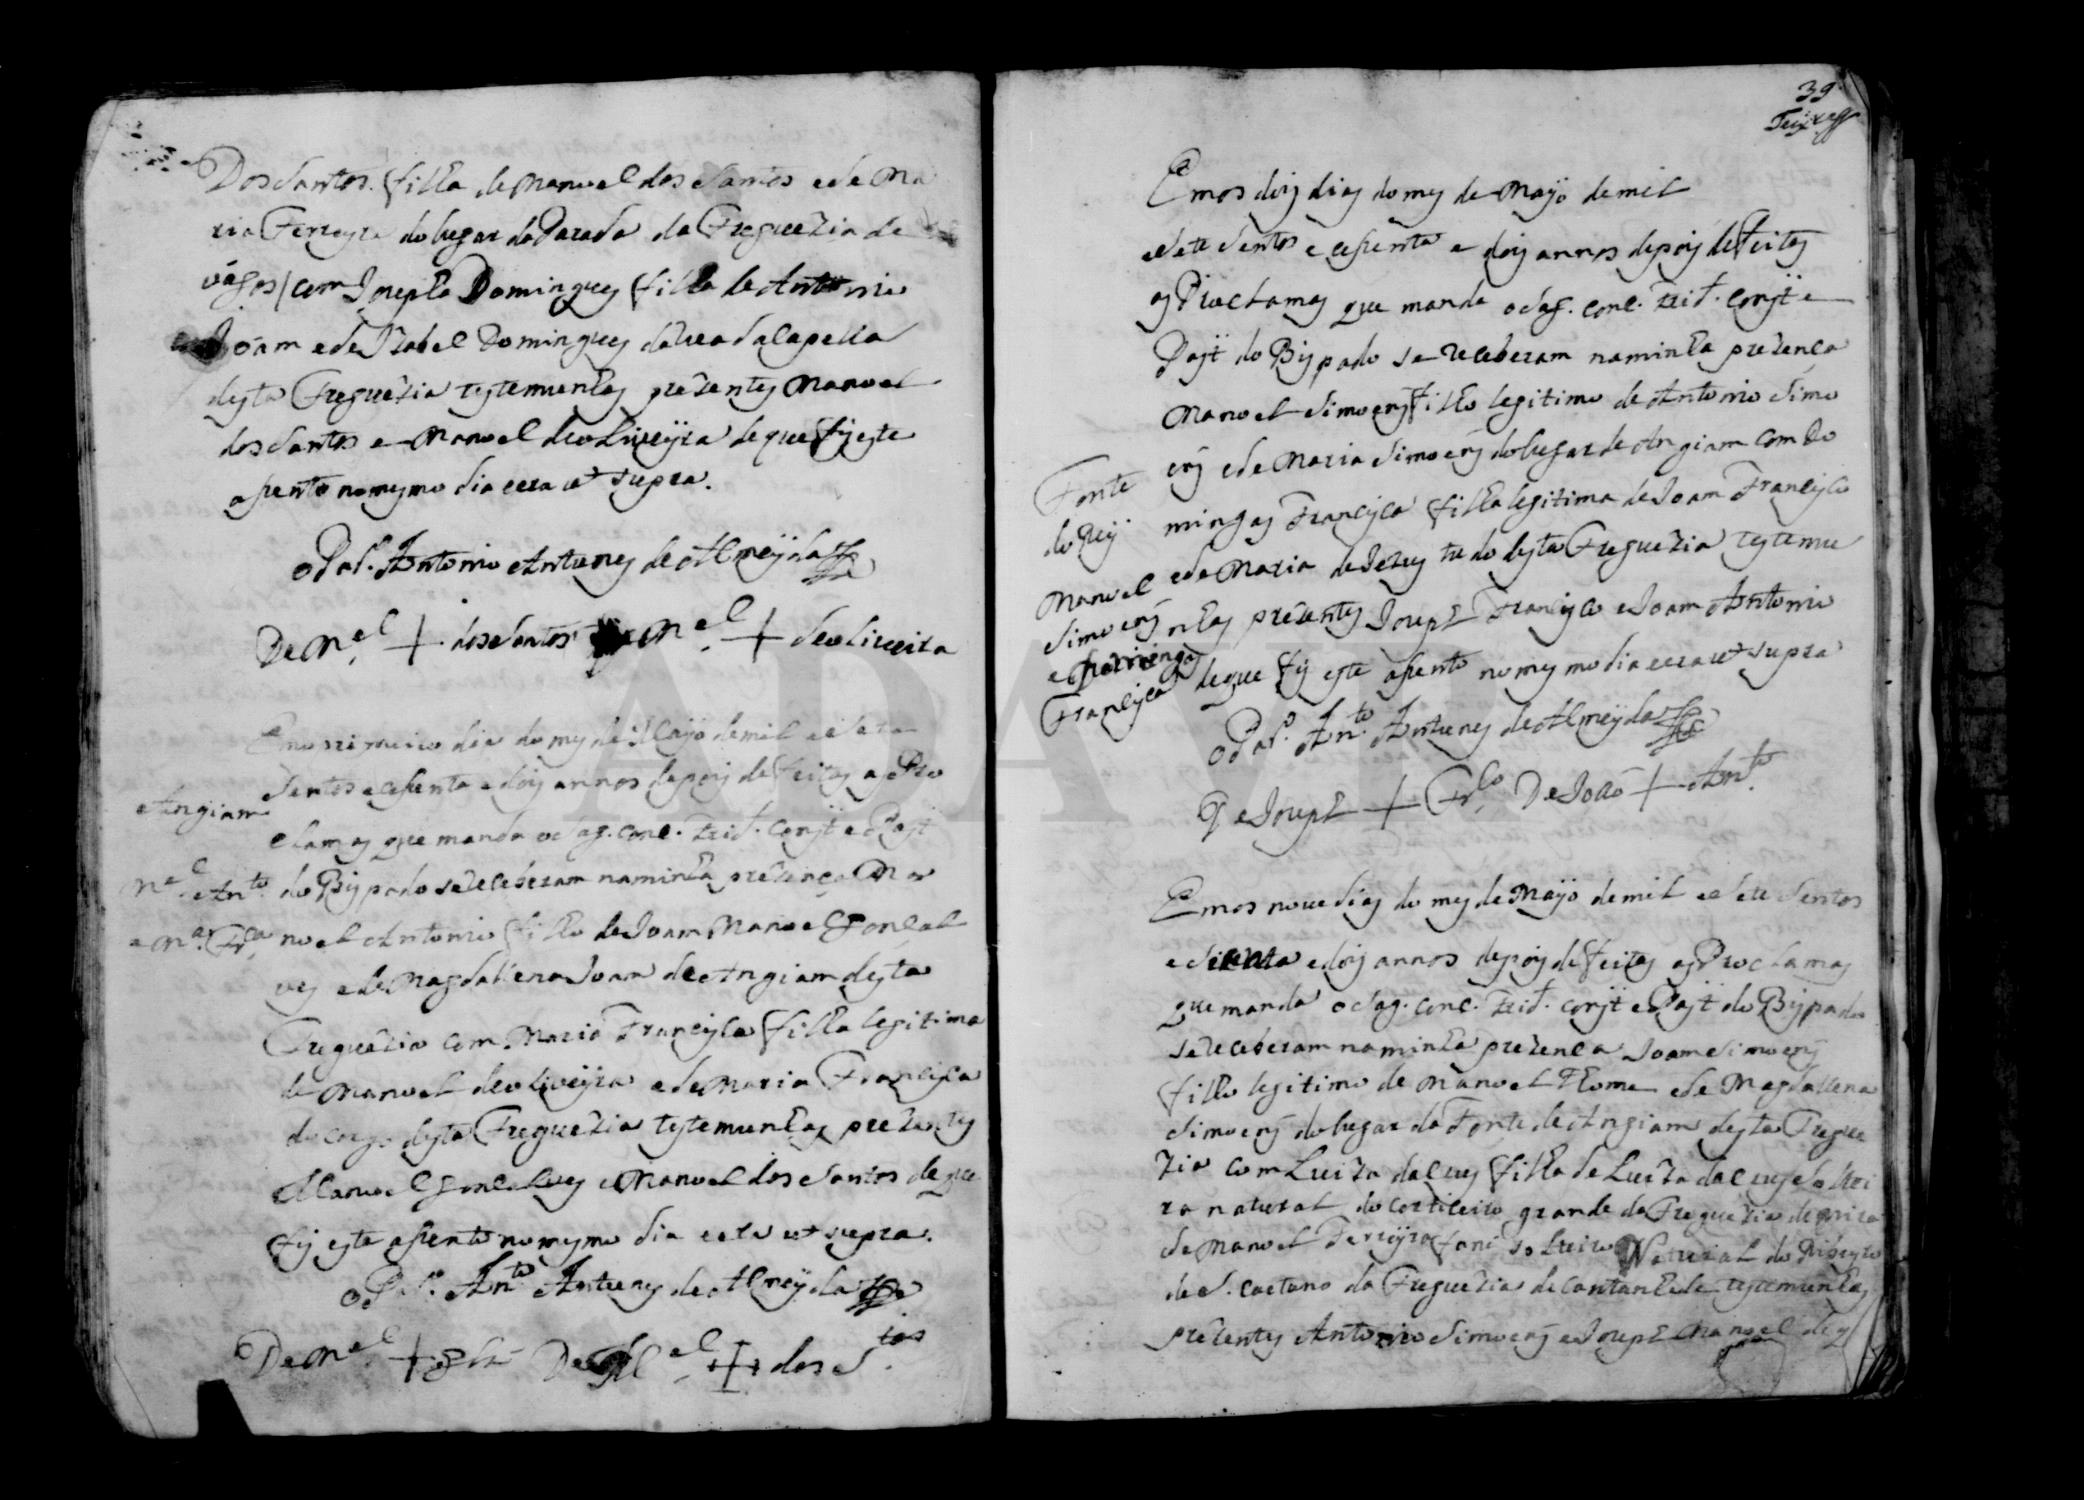 Dos Santos filha de Manoel dos Santos e de Ma
ria Ferreyra do lugar da Parada da Freguezia de
Vagos / com Josepha Domingues filha de Antonio
Joam e de Izabel Domingues da vea da Capella
desta Freguezia testemunhas prezentes Manoel
dos Santos e Manoel de oLiveyra de que fis este
asento no mesmo dia e era ut supra.
o P.al. Antonio Antunes de Almeyda
De M.el + dos Santos M.el + de oliveira
Em o primeiro dia do mes de Mayo de mil e sete
Sentos e sesenta e dois annos depois de feitas as Pro
Angiam
clamas que manda o Sag. Conc. Trid. Const e Past
M.el Ant.o
do Bispado se receberam na minha prezença Ma
e M.a Fr.ca
noel Antonio filho de Joam Manoel Gonçal
ves e de Magdallena Joam de Angiam desta
Freguezia com Maria Francisca filha legitima
de Manoel de oliveyra e de Maria Francisca
do desta Freguezia testemunhas prezentes
Manoel Gonçalves e Manoel dos Santos de que
fis este asento no mesmo dia e era ut supra.
o P.al. An.to Antunes de Almeyda
De M.el + De M.el + dos S.tos
39
Emos dois dias do mes de Mayo de mil
e sete Sentos e sesenta e dois annos depois de feitas
as Proclamas que manda o Sag. Conc. Trid. Const e
Past do Bispado se receberam na minha prezença
Manoel Simoens filho legitimo de Antonio Simo
ens e de Maria Simoens do lugar de Angiam com Do
Fonte
mingas Francisca filha legitima de Joam Francisco
do Rey
e de Maria de Jezus tudo desta Freguezia testemu
Manoel
nhas prezentes Joseph Francisco e Joam Antonio
Simoens
de que fis este asento no mesmo dia e era ut supra
e Dominga
Francisca
o P.al. An.to Antunes de Almeyda
De Joseph + Fr.co De João + Ant.o
Emos nove dias do mes de Mayo de mil e sete Sentos
e sesenta e dois annos depois de feitas as Proclamas
que manda o Sag. Conc. Trid. Const e Past do Bispado
se receberam na minha prezença Joam Simoens
filho legitimo de Manoel Thome e de Magdallena
Simoens do lugar da Fonte de Angiam desta Fregue
zia com Luiza da Crus filha de Luiza da Crus soltei
ra natural do Corticeiro grande da Freguezia de Mira
e de Manoel Ferreyra solteiro Natural do Ribeyro
de S. Caetano da Freguezia de Cantanhede testemunhas
prezentes Antonio Simoens e Joseph Manoel de q
ADAVR